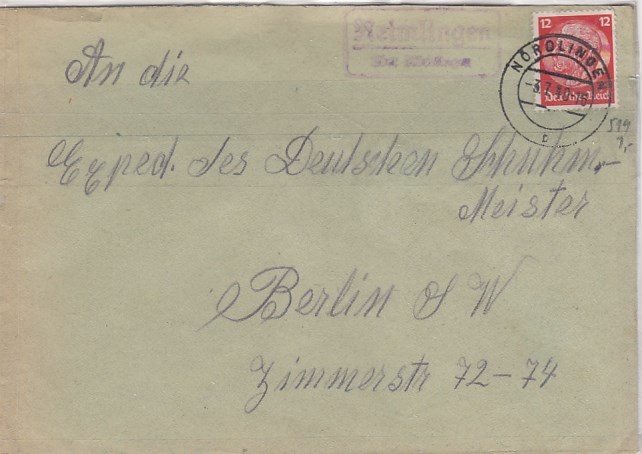 Reimlingen
über Nördlingen
12 12
Deutsches Reich
NÖRDLINGEN
b
An die
Exped. des Deutschen Schuhm.-
Meister
Berlin S W
Zimmerstr 72-74